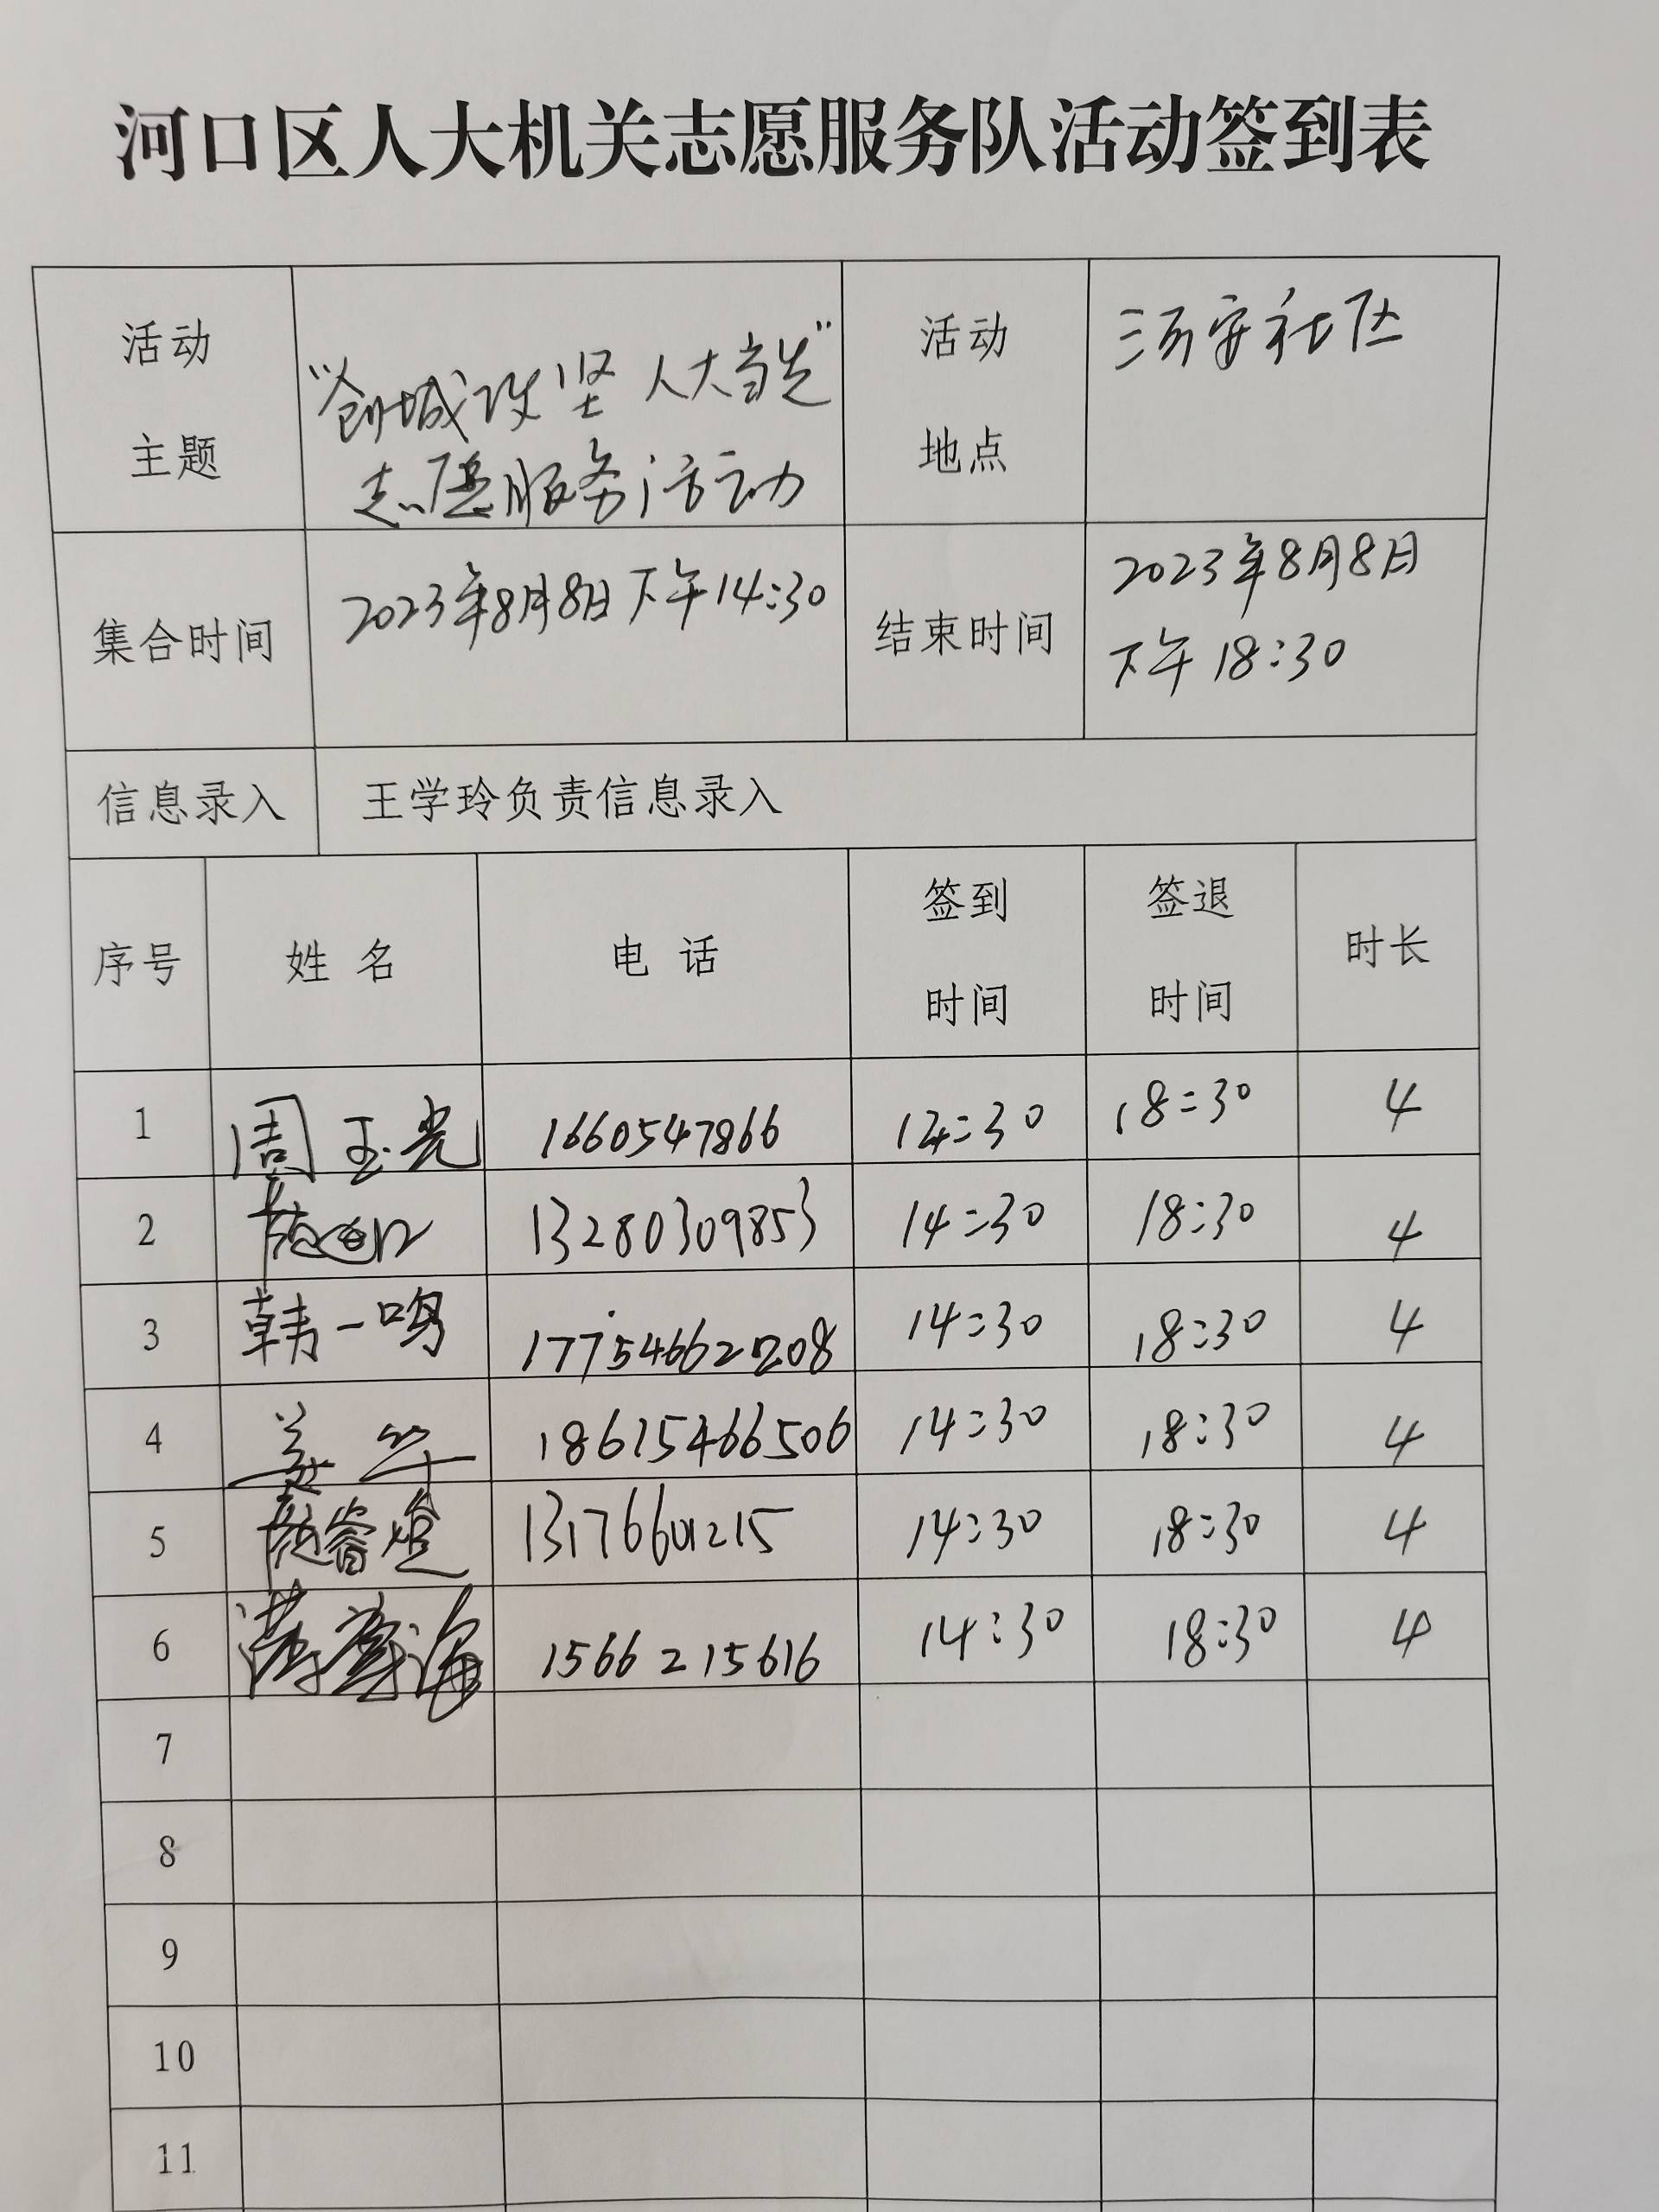 河口区人大机关志愿服务队活动签到表
活动
主题
"创城攻坚 人大当先"
志愿服务活动
活动
地点
社区
集合时间
2023年8月8日下午14:30
结束时间
2023年8月8日
下午18:30
信息录入
王学玲负责信息录入
序号
姓 名
电 话
签到
时间
签退
时间
时长
1 周玉光 1660547866 14:30 18:30 4
2 13280309853 14:30 18:30 4
3 韩一鸣 17754662208 14:30 18:30 4
4 姜华 18615466506 14:30 18:30 4
5 13176601215 14:30 18:30 4
6 海 1566215616 14:30 18:30 4
7
8
9
10
11